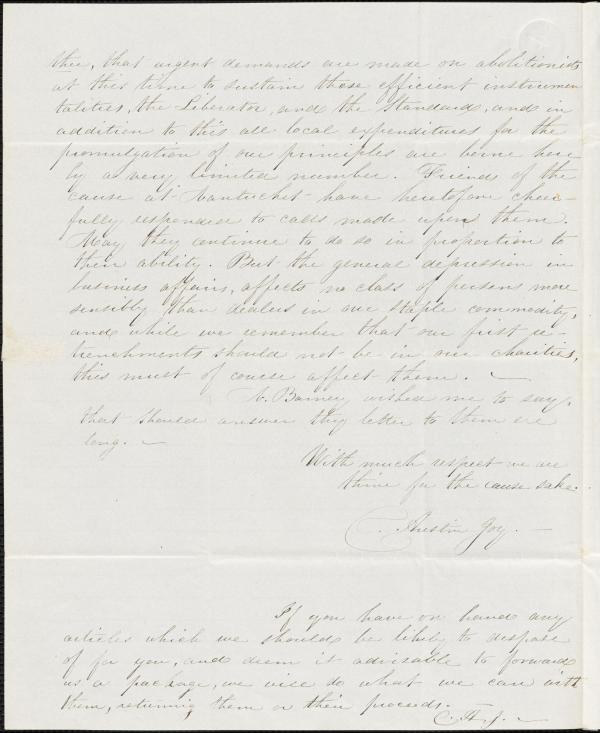 thee, that urgent demands are made on abolitionists
at this time to sustain those efficient instrumen
talities, the Liberator, and the Standard, and in
addition to this all local expenditures for the
promulgation of our principles are borne here
by a very limited number. Friends of the
cause at Nantucket have heretofore cheer-
fully responded to calls made upon them.
May they continue to do so in proportion to
their ability. But the general depression in
business affairs, affects no class of persons more
sensibly than dealers in our staple commodity,
and while we remember that our first re-
trenchments should not be in our charities,
this must of course affect them. —
N. Barney wished me to say,
that should answer thy letter to them ere
long. —
With much respect we are
thine for the cause sake.
C. Austin Joy. —
If you have on hand any
articles which we should be likely to dispose
of for you, and deem it advisable to forward
us a package, we will do what we can with
them, returning them or their proceeds.
C. A. J. —